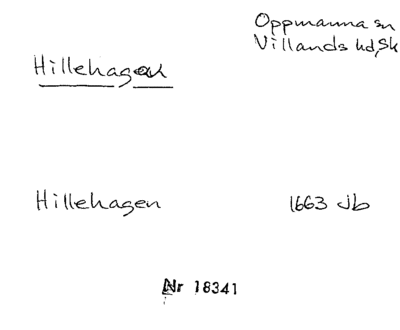 Oppmanna sn
Villands hd, Sk
Hillehagen
Hillehagen 1663 Jb
Nr 18341